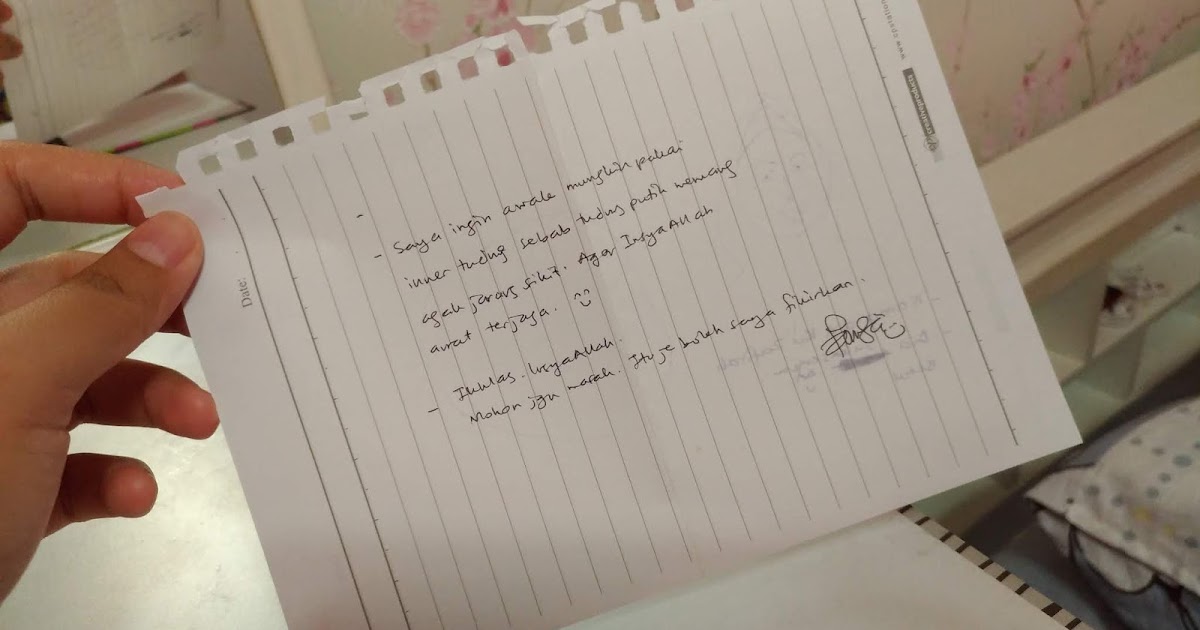 Date:
www.cpstation
creativeproducts
-
- Saya ingin awak mungkin pakai
inner tudung sebab tudung putih memang
agak jarang sikit. Agar InsyaAllah
aurat terjaga. :)
- Ikhlas. InsyaAllah.
Mohon jgn marah. Itu je boleh saya fikirkan.